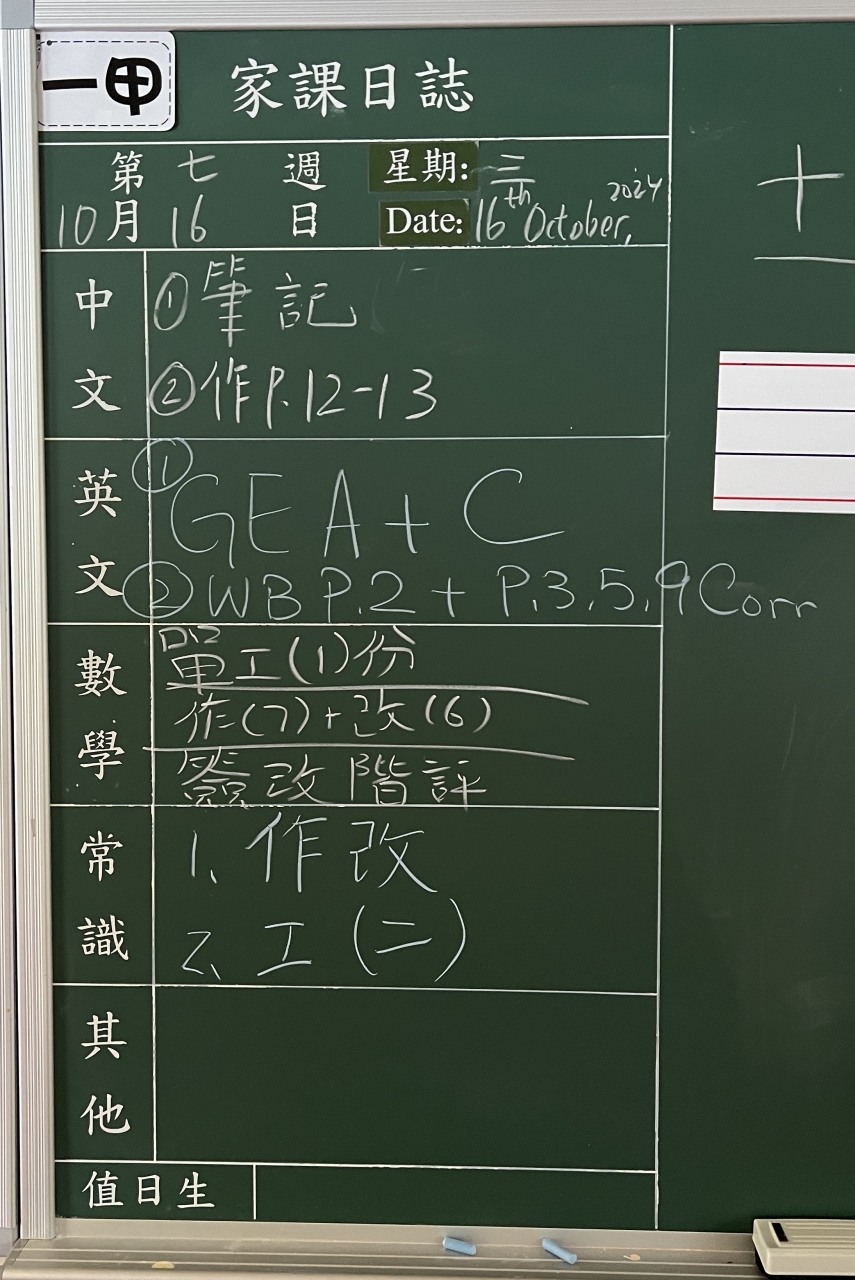 一甲
家課日誌
第 七 週 星期: 三
10月 16 日 Date: 16th October, 2024
中文
①筆記
②作P.12-13
英文
① GE A + C
② WB P.2 + P.3.5.9 Corr
數學
單工(1)份
作(7)+改(6)
簽改階評
常識
1. 作改
2. 工(二)
其他
值日生
十